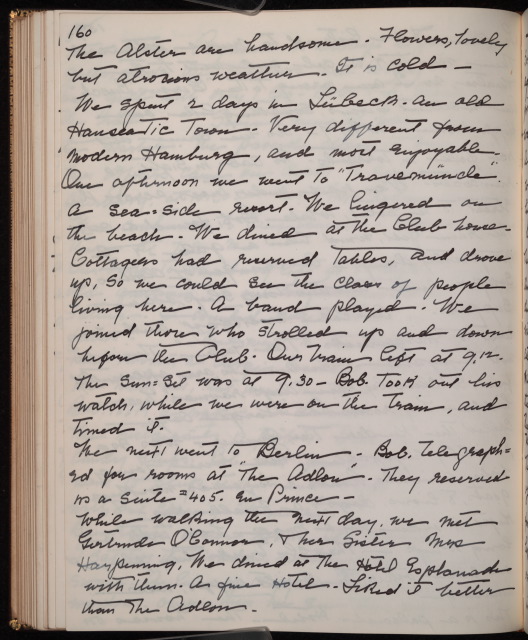 160
The Alster are handsome. Flowers, lovely
but atrocious weather. It is cold —
We spent 2 days in Lübeck. an old
Hanseatic Town. Very different from
modern Hamburg, and most enjoyable.
One afternoon we went to "Travemünde".
a Sea-side resort. We lingered on
the beach. We dined at the Club house.
Cottagers had reserved Tables, and drove
up, so we could see the class of people
living here. A band played. We
joined those who strolled up and down
before the Club. Our train left at 9.12.
The Sun-set was at 9.30 — Bob took out his
watch, while we were on the train, and
timed it.
We next went to Berlin. Bob. telegraph=
ed for rooms at "The Adlon". They reserved
us a Suite #405. en Prince —
While walking the next day, we met
Gertrude O'Connor, & her Sister Mrs
We dined at The Hotel Esplanade
with them. A fine Hotel. Liked it better
than The Adlon.